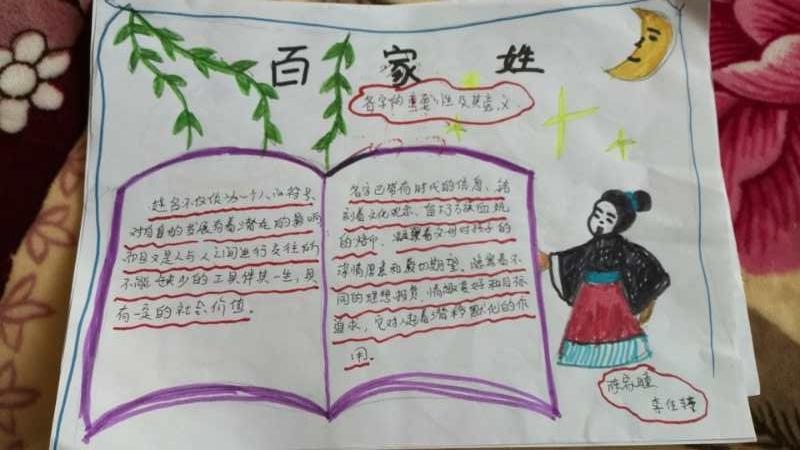 百家姓
名字的重要性及其意义
姓名不仅仅为一个人的符号
对自身的发展有着潜在的影响
而且又是人与人之间进行交往的
不能缺少的工具伴其一生,具
有一定的社会价值。
名字已带有时代的信息、铭
刻着文化观念、留下了民族血統
的烙印、凝聚着父母对孩子的
深情厚意和殷切期望、隐寓着不
同的理想抱负、情趣爱好和目标
追求,它对人起着潜移默化的作
用。
李佳